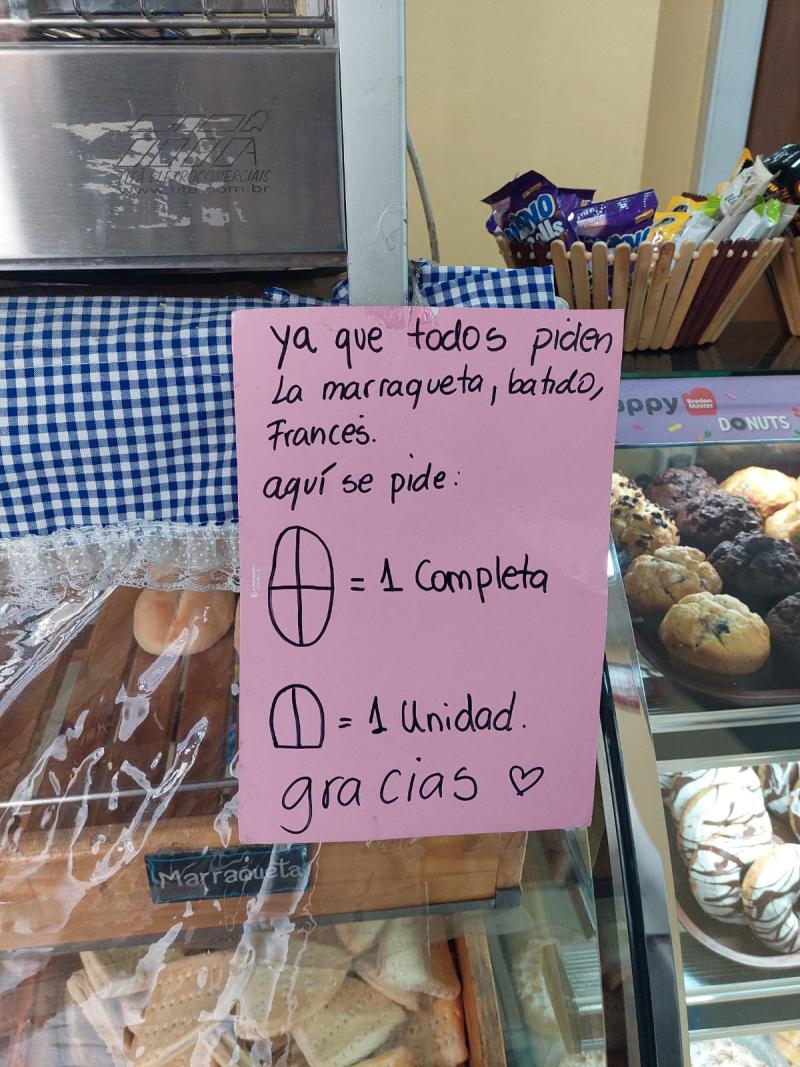 ITÁ ELETROCOMERCIAIS
www.ita.com.br
ya que todos piden
La marraqueta, batido,
Francés.
aquí se pide:
= 1 Completa
= 1 Unidad.
gracias ♡
Marraqueta
Breden
Master
DONUTS